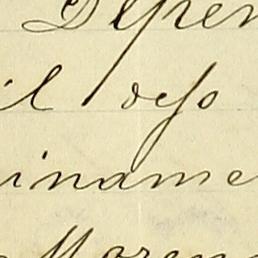 Deper
il dejo
iname
Moren